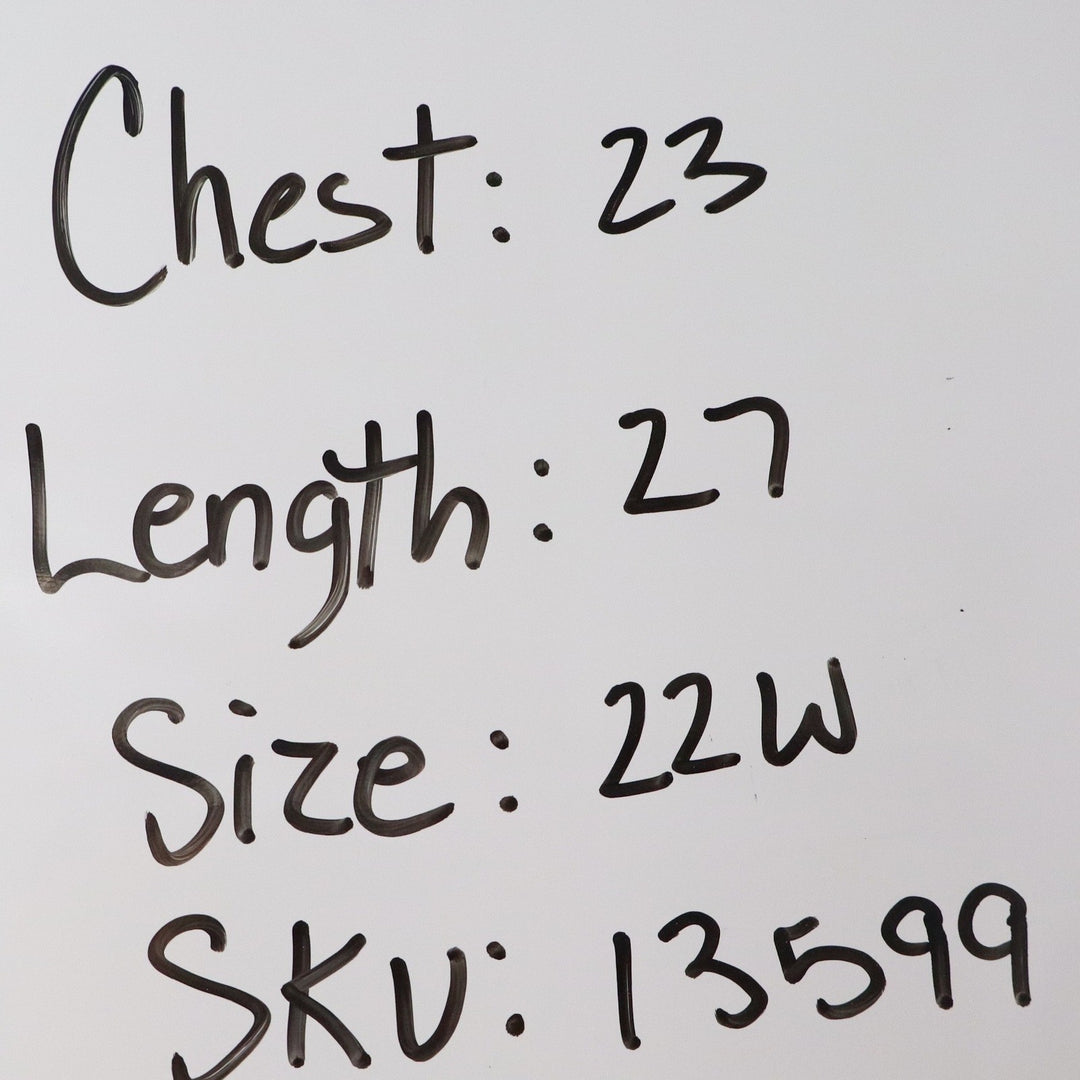 Chest: 23
Length: 27
Size: 22W
SKU: 13599